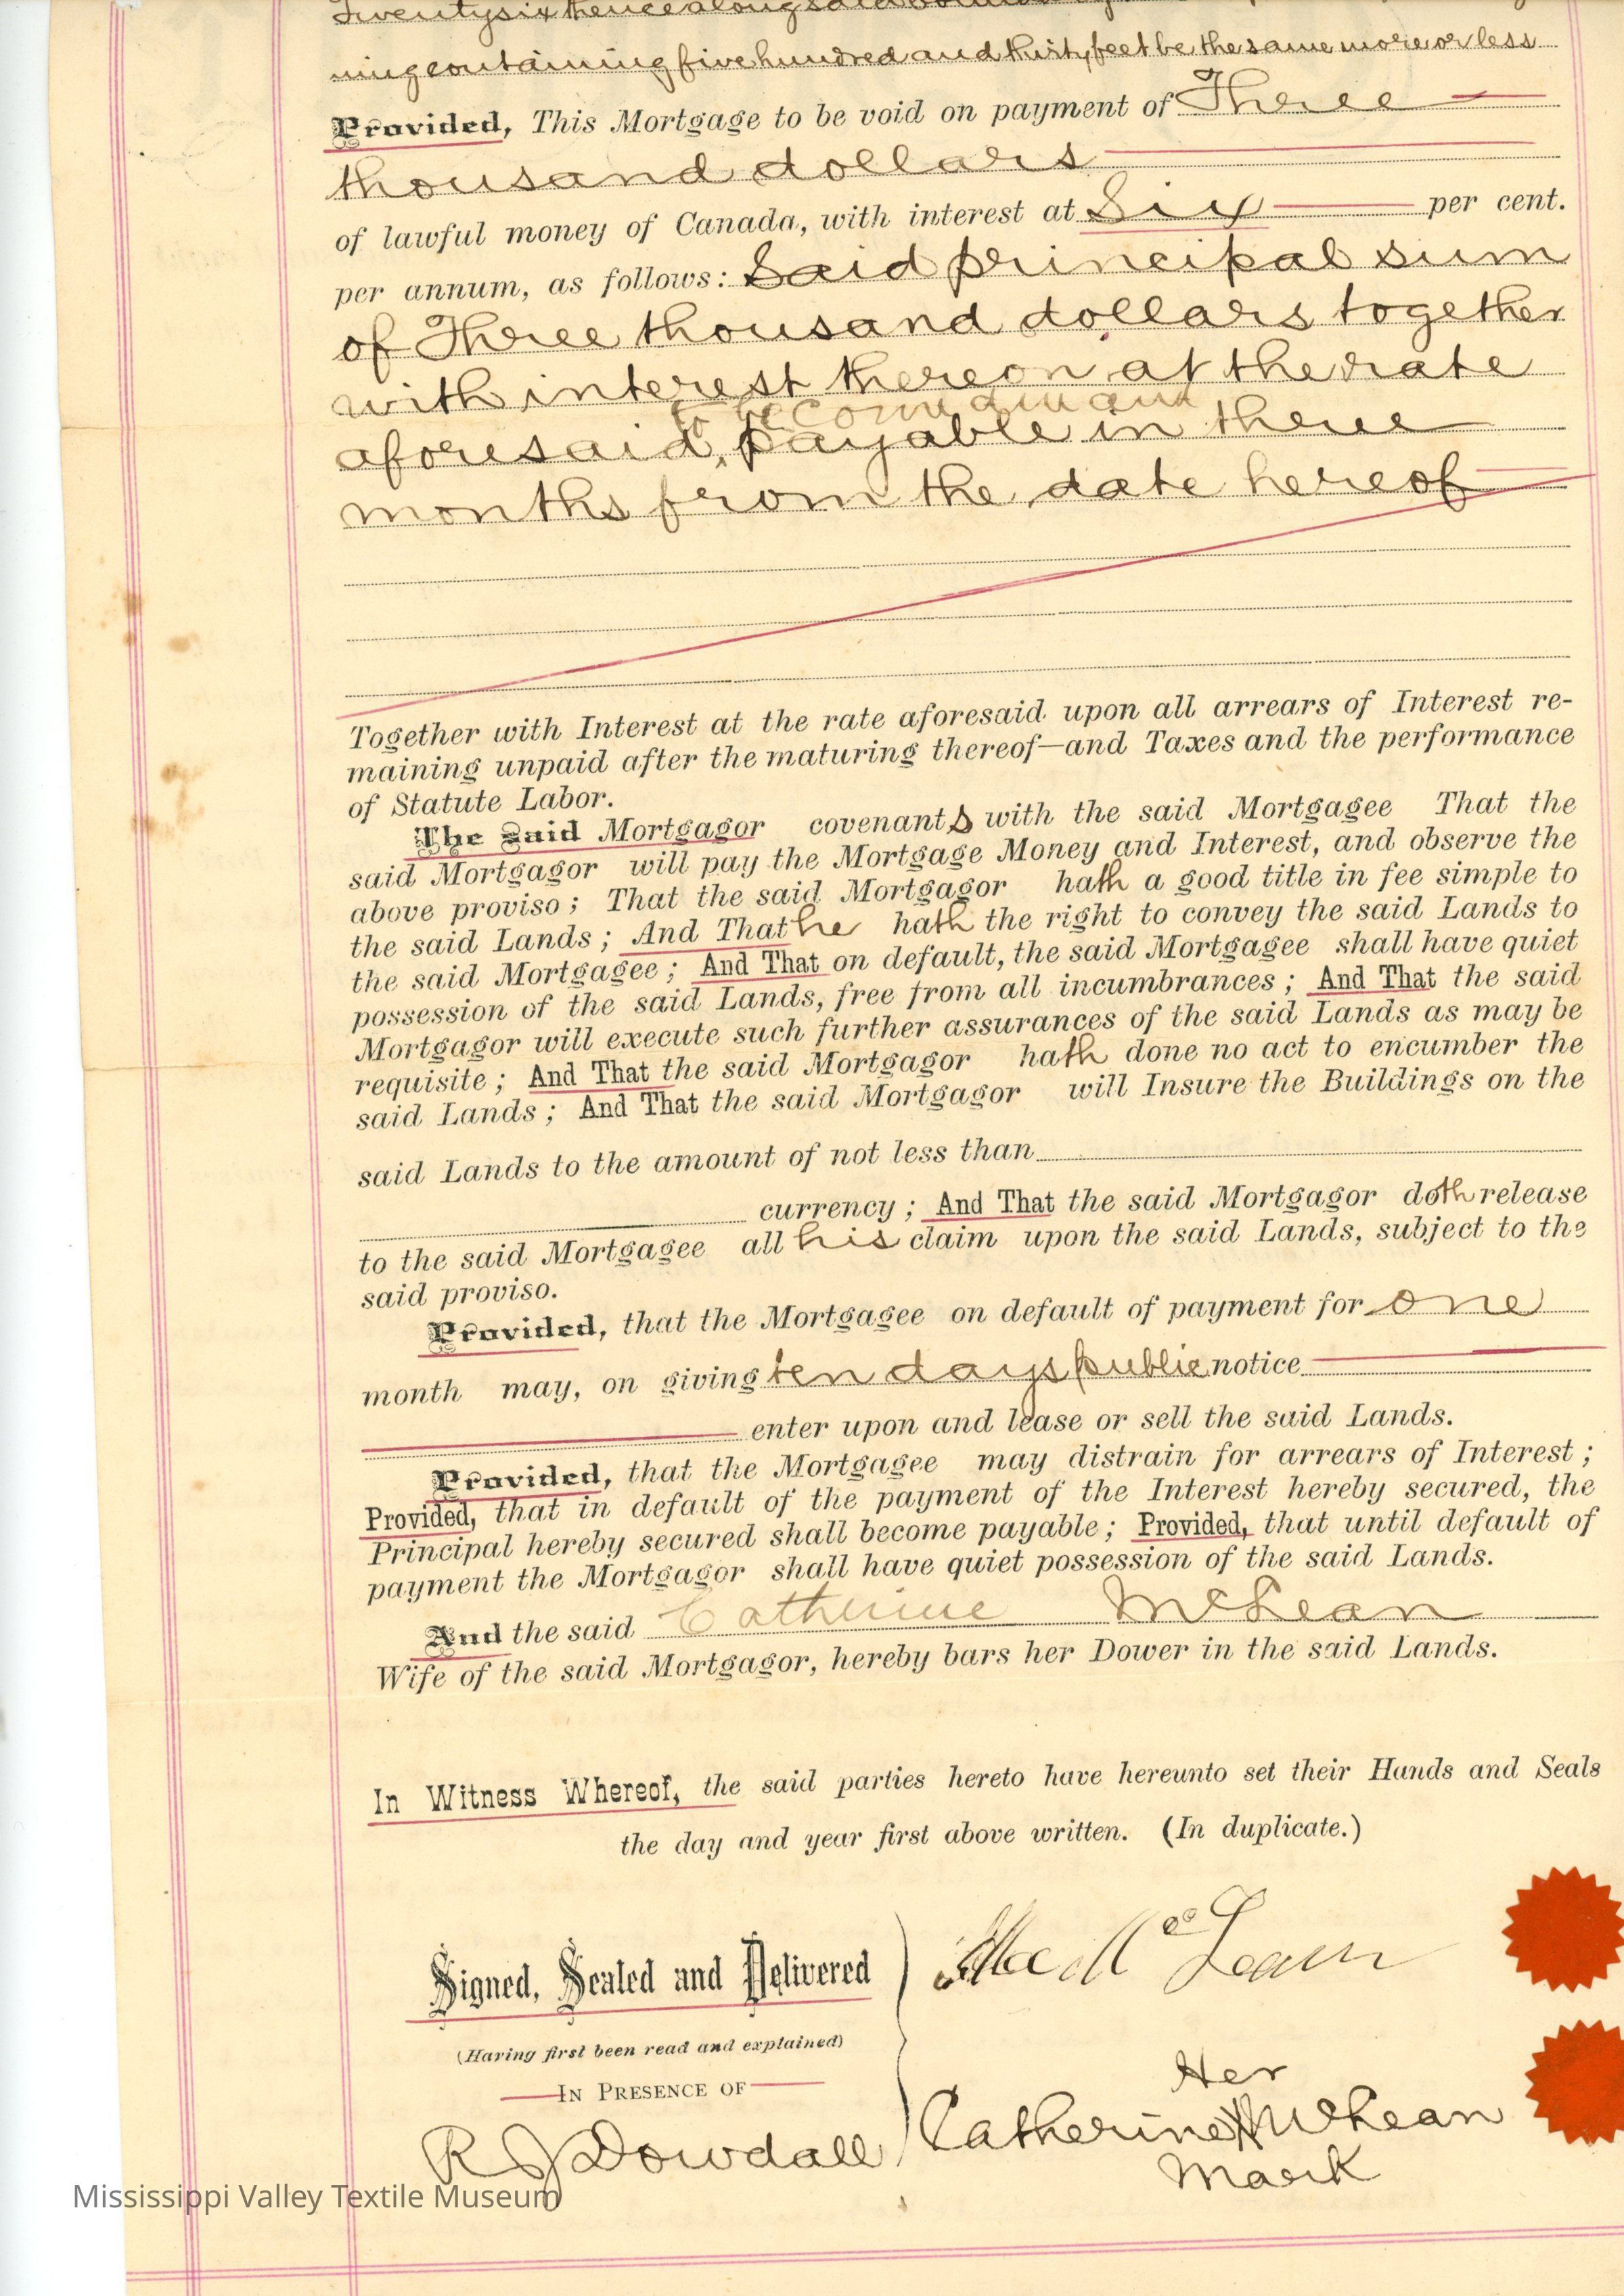 Twentysix thence along said
ning containing five hundred and thirty feet be the same more or less
Provided, This Mortgage to be void on payment of Three
thousand dollars
of lawful money of Canada, with interest at Six per cent.
per annum, as follows: Said principal sum
of Three thousand dollars together
with interest thereon at the rate
to become due and
aforesaid, payable in three
months from the date hereof
Together with Interest at the rate aforesaid upon all arrears of Interest re-
maining unpaid after the maturing thereof—and Taxes and the performance
of Statute Labor.
The said Mortgagor covenants with the said Mortgagee That the
said Mortgagor will pay the Mortgage Money and Interest, and observe the
above proviso; That the said Mortgagor hath a good title in fee simple to
the said Lands; And That he hath the right to convey the said Lands to
the said Mortgagee; And That on default, the said Mortgagee shall have quiet
possession of the said Lands, free from all incumbrances; And That the said
Mortgagor will execute such further assurances of the said Lands as may be
requisite; And That the said Mortgagor hath done no act to encumber the
said Lands; And That the said Mortgagor will Insure the Buildings on the
said Lands to the amount of not less than
currency; And That the said Mortgagor doth release
to the said Mortgagee all his claim upon the said Lands, subject to the
said proviso.
Provided, that the Mortgagee on default of payment for one
month may, on giving ten days public notice
enter upon and lease or sell the said Lands.
Provided, that the Mortgagee may distrain for arrears of Interest;
Provided, that in default of the payment of the Interest hereby secured, the
Principal hereby secured shall become payable; Provided, that until default of
payment the Mortgagor shall have quiet possession of the said Lands.
And the said Catherine McLean
Wife of the said Mortgagor, hereby bars her Dower in the said Lands.
In Witness Whereof, the said parties hereto have hereunto set their Hands and Seals
the day and year first above written. (In duplicate.)
Signed, Sealed and Delivered
(Having first been read and explained)
IN PRESENCE OF
R J Dowdall
Alex McLean
Her
Catherine X McLean
Mark
Mississippi Valley Textile Museum